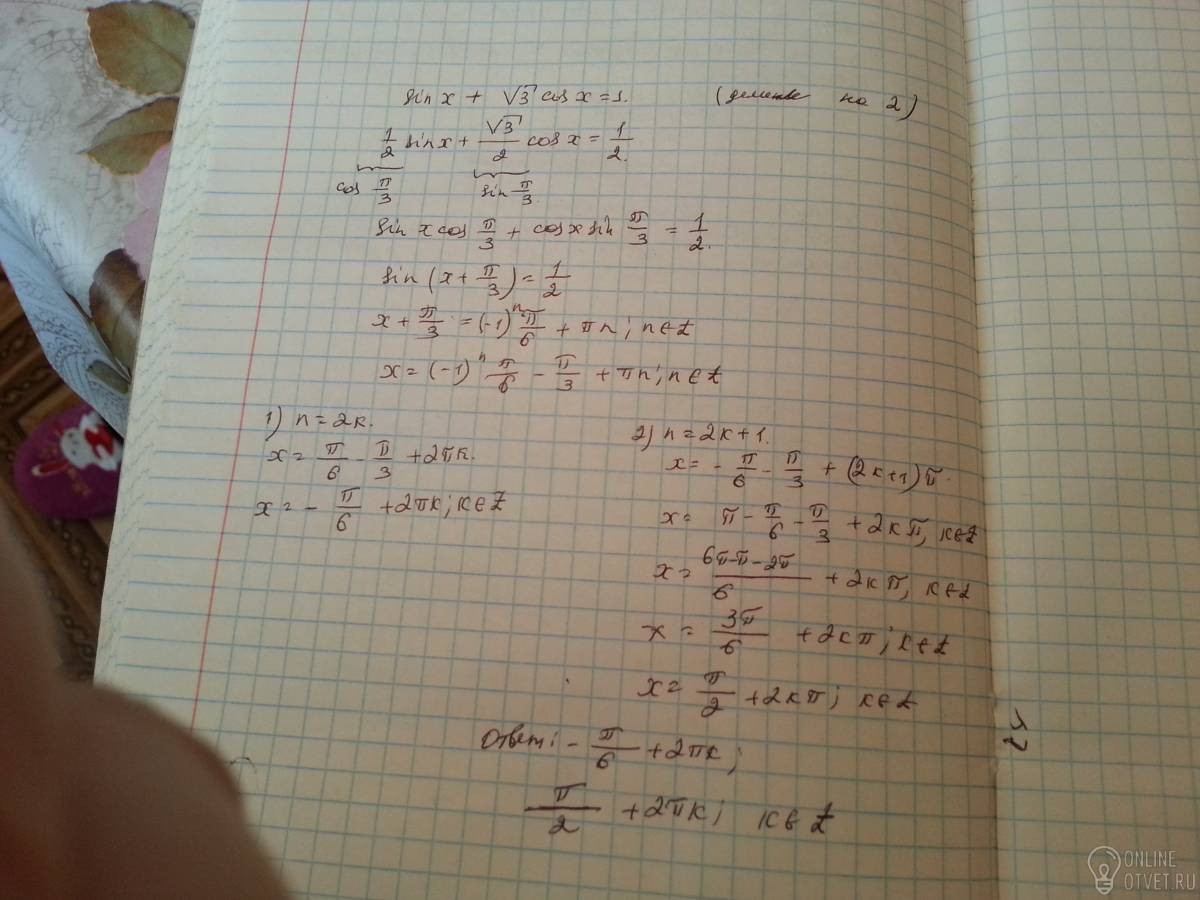 sin x + √3 cos x = 1. (деление на 2)
1/2 sin x + √3/2 cos x = 1/2.
cos π/3 sin π/3.
sin x cos π/3 + cos x sin π/3 = 1/2.
sin (x + π/3) = 1/2
x + π/3 = (-1)ⁿ π/6 + πn; n∈Z
x = (-1)ⁿ π/6 - π/3 + πn; n∈Z
1) n = 2k.
x = π/6 - π/3 + 2πk.
x = - π/6 + 2πk; k∈Z
2) n = 2k+1.
x = - π/6 - π/3 + (2k+1)π.
x = π - π/6 - π/3 + 2kπ, k∈Z
x = (6π-π-2π)/6 + 2kπ, k∈Z
x = 3π/6 + 2kπ; k∈Z
x = π/2 + 2kπ; k∈Z
Ответ: - π/6 + 2πk;
π/2 + 2πk; k∈Z
ONLINE
OTVET.RU